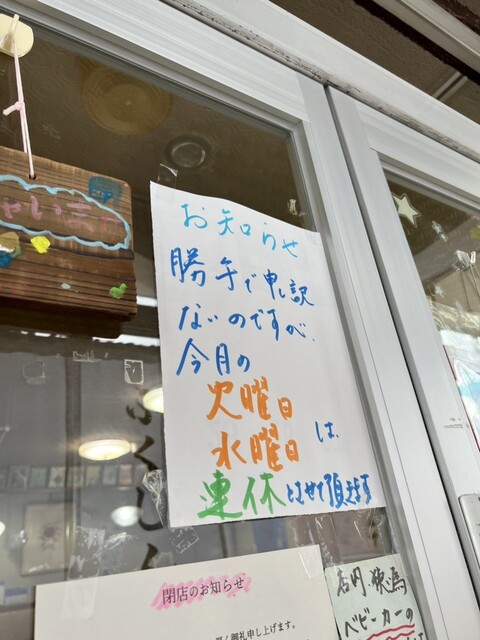 お知らせ
勝手で申し訳
ないのですが、
今月の
火曜日
水曜日 は、
連休とさせて頂きます
閉店のお知らせ
御礼申し上げます。
店内狭い為
ベビーカーの